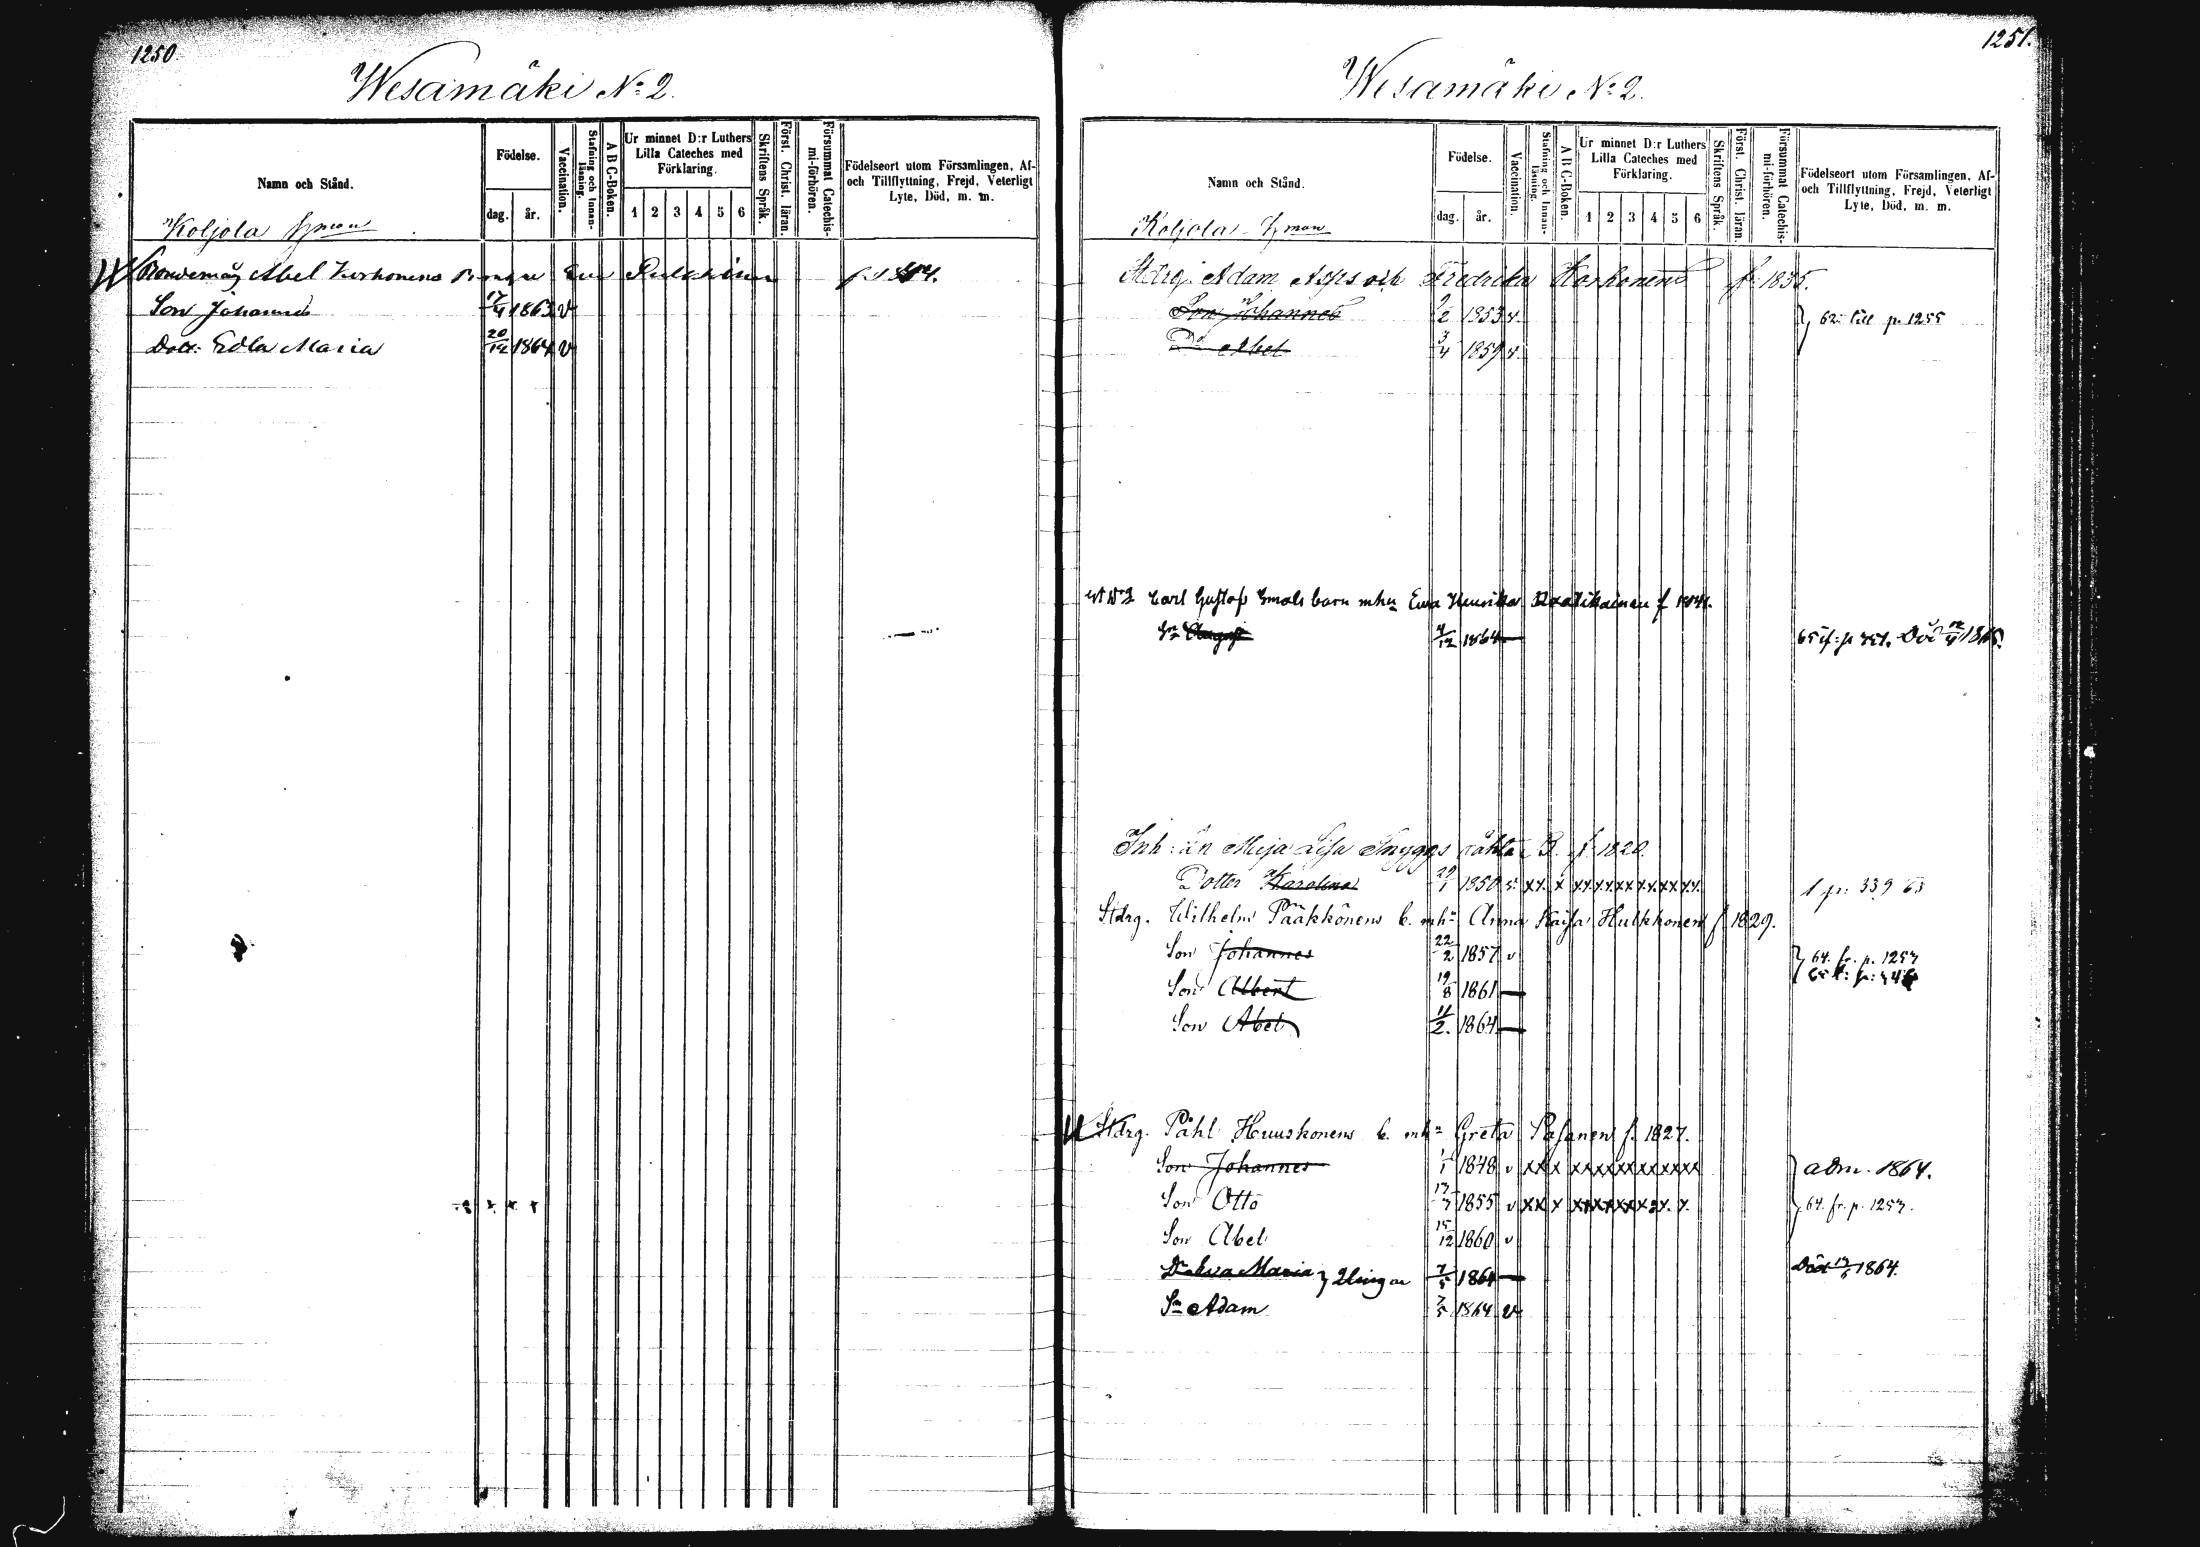 1250.
Wesamäki No 2.
Namn och Stånd.
Födelse.
dag.
år.
Vaccination.
Stafning och Innan-läsning.
A B C-Boken.
Ur minnet D:r Luthers Lilla Cateches med Förklaring.
1 2 3 4 5 6
Skriftens Språk.
Först. Christ. läran.
Försummat Catechis-mi-förhören.
Födelseort utom Församlingen, Af- och Tillflyttning, Frejd, Veterligt Lyte, Död, m. m.
Koljola
Abel
Son Johannes 17/4 1863 v
Dotr. Edla Maria 20/12 1864 v
1251.
Wesamäki No 2.
Namn och Stånd.
Födelse.
dag.
år.
Vaccination.
Stafning och Innan-läsning.
A B C-Boken.
Ur minnet D:r Luthers Lilla Cateches med Förklaring.
1 2 3 4 5 6
Skriftens Språk.
Först. Christ. läran.
Försummat Catechis-mi-förhören.
Födelseort utom Församlingen, Af- och Tillflyttning, Frejd, Veterligt Lyte, Död, m. m.
Koljola
Adam och Fredrika Korhonens f. 1835.
Son Johannes 2 1853 v. 62 till p. 1255
Do Abel 3/4 1859 v
Carl Gustaf barn Eva Henrika
Sn August 4/12 1864
Inh: än Maja Lisa f. 1820.
Dotter Karolina 29/1 1850 p. 339
Stdrg. Wilhelm Pääkkönens b. mhn Anna Kaisa Hulkkonen f 1829.
Son Johannes 22/2 1857 v 64. fr. p. 1257
Son Albert 19/8 1861
Son Abel 11/2. 1864
Stdrg. Påhl Huuskonens b. mhn Greta Pasanen f. 1827.
Son Johannes 1/1 1848 v xx x xxxxxxxxxxxx adm. 1864.
Son Otto 1855 v xx x 64. fr. p. 1257.
Son Abel 15/12 1860 v
Dr Eva Maria } 7/5 1864 Död 1864.
Sn Adam 7/5 1864 v